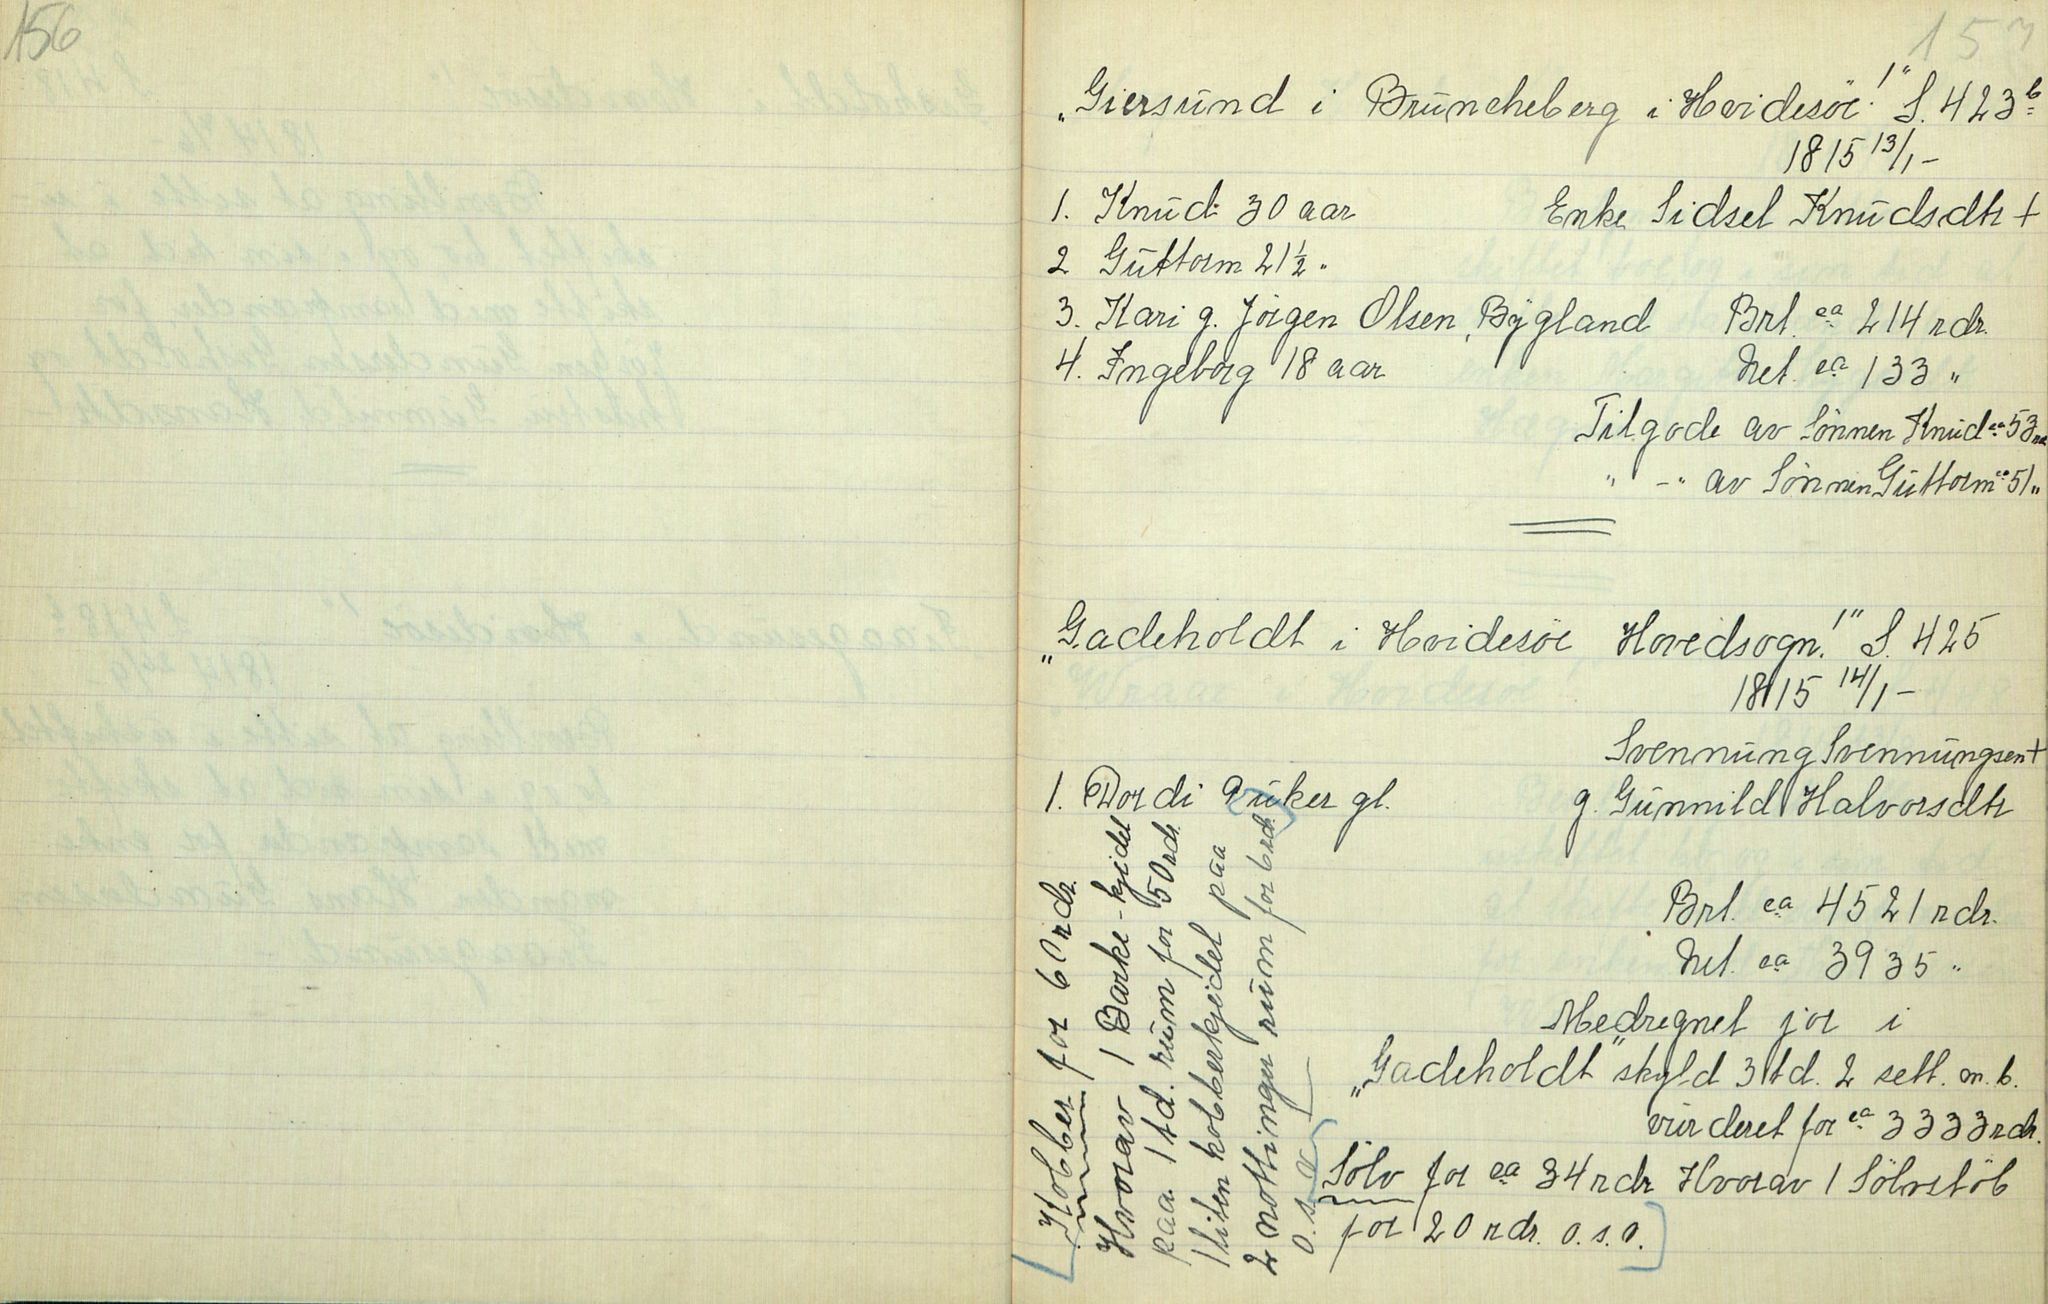 156
157
„Giersund i Bruncheberg i Hvidesöe!" S. 423b
1815 13/1-
1. Knud 30 aar
Enke Sidsel Knudsdtr +
2 Guttorm 21½ "
3. Kari g. Jörgen Olsen, Bygland
Brt. ca 214 rdr.
4. Ingeborg 18 aar
Net. ca 133 "
Tilgode av Sönnen Knud ca 53 rdr
" -" av Sönnen Guttorm ca 51 "
„Gadeholdt i Hvidesöe Hovedsogn!" S. 425
1815 14/1-
Svennung Svennungsen +
1. Dordi 9 uker gl.
g. Gunnild Halvorsdtr
Brt. ca 4521 rdr.
Net. ca 3935 "
Medregnet jor i
„Gadeholdt" skyld 3 td. 2 sett. m. b.
vurderet for ca 3333 rdr.
Sölv for ca 34 rdr Hvorav 1 Sölvstöb
for 20 rdr. o.s.v.]
[Kobber for 60 rdr.
Hvorav 1 Barke-kjedel
paa 1 td. rum for 50 rdr.
1 liten kobberkjedel paa
2 nottinger rum for 6 rdr.
o.s.v.]